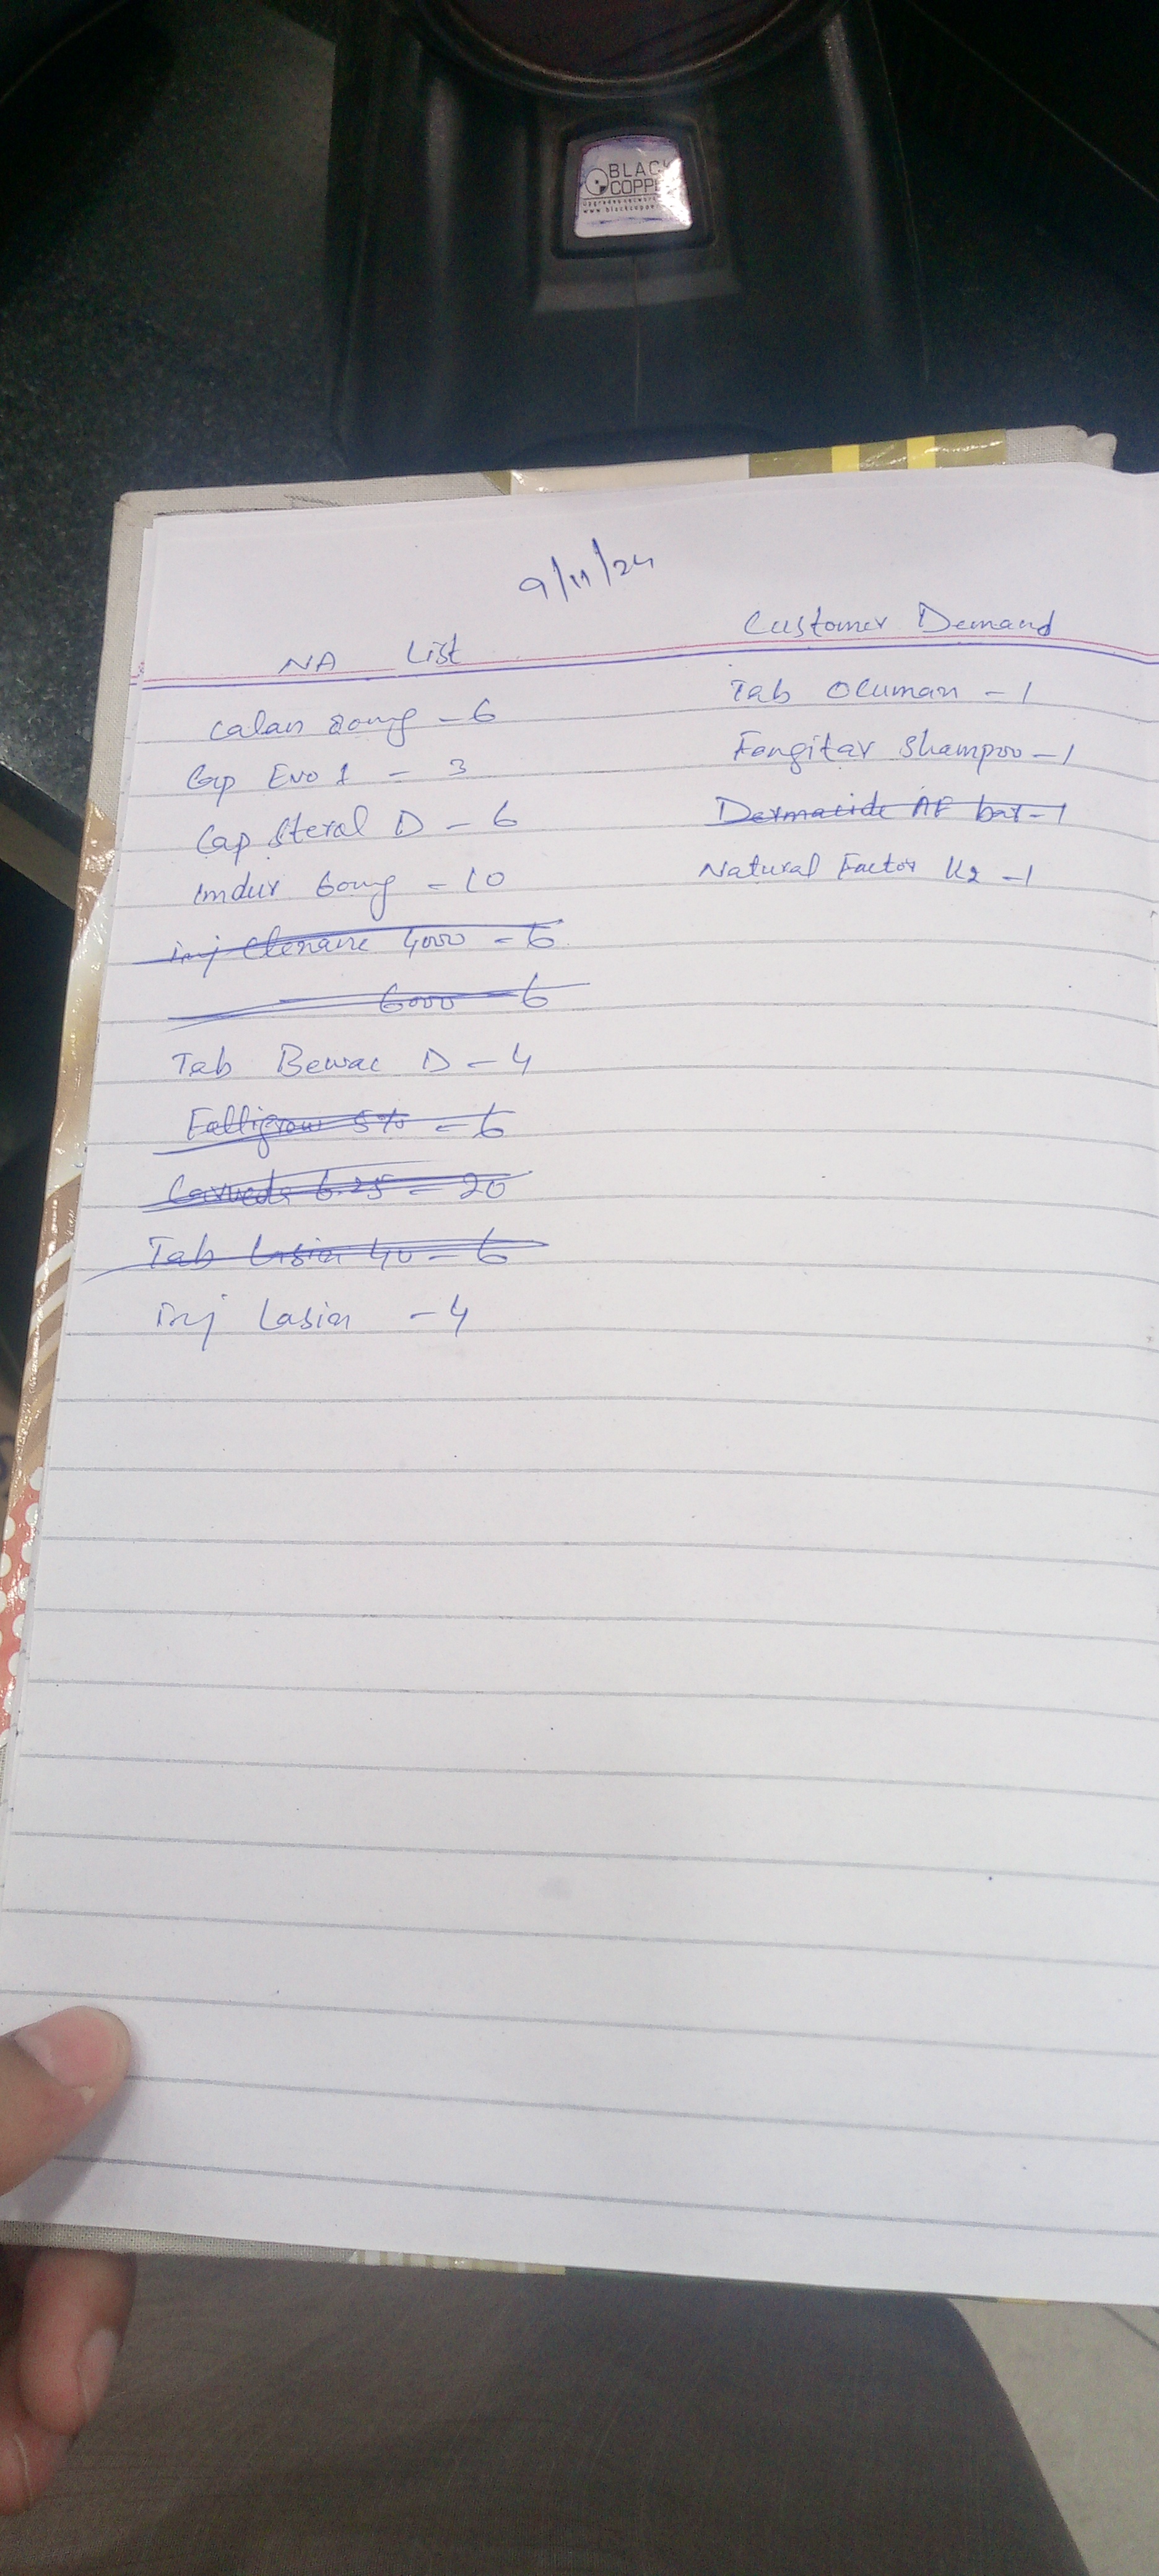 BLACK
COPPE
www.blackcoppe
9/11/24
NA List
Calan 80mg - 6
Cap Evo 1 - 3
Cap Steral D - 6
Imdur 60mg - 10
inj Clenaxe 4000 - 6
6000 - 6
Tab Bewac D - 4
5% - 6
Carveda 6.25 - 20
Tab Lasix 40 - 6
inj Lasix - 4
Customer Demand
Tab Ocuman - 1
Fongitar Shampoo - 1
Dermacide AF bar - 1
Natural Factor K2 - 1